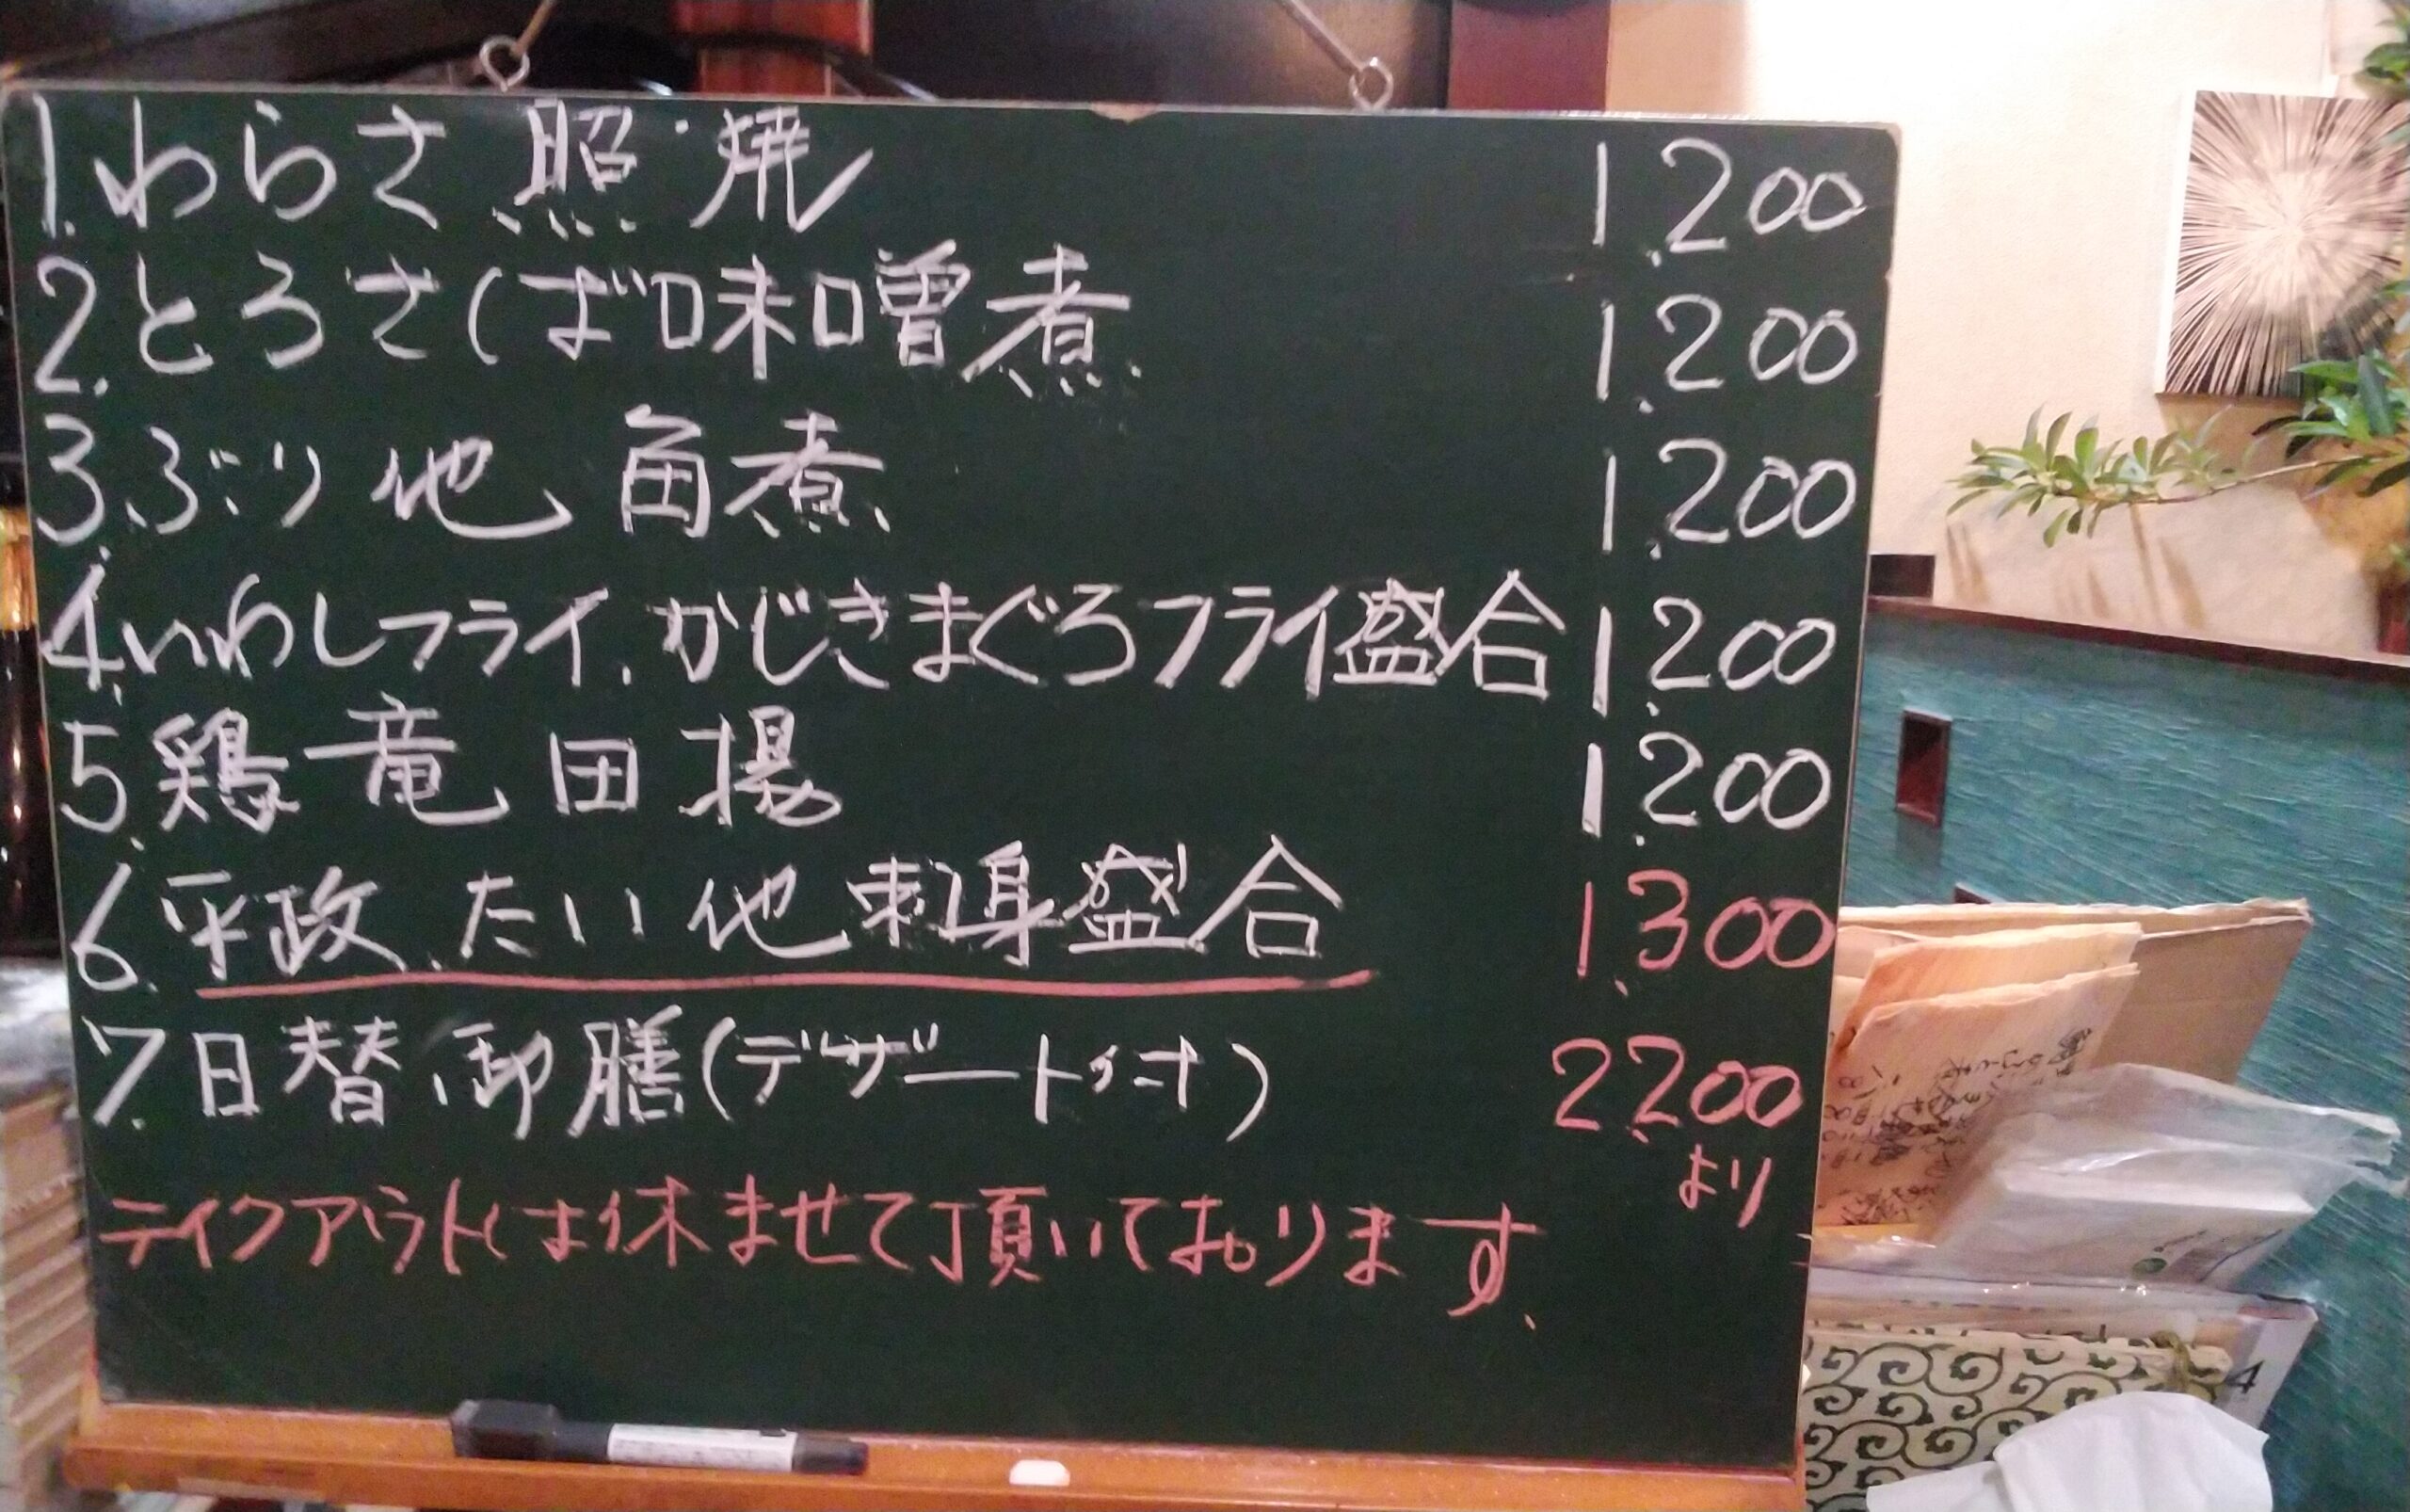 1.わらさ照焼 1,200
2.とろさば味噌煮 1,200
3.ぶり他 角煮 1,200
4.いわしフライ、かじきまぐろフライ盛合 1,200
5.鶏竜田揚 1,200
6.平政、たい他刺身盛合 1,300
7.日替御膳(デザート付) 2,200
より
テイクアウトは休ませて頂いております、